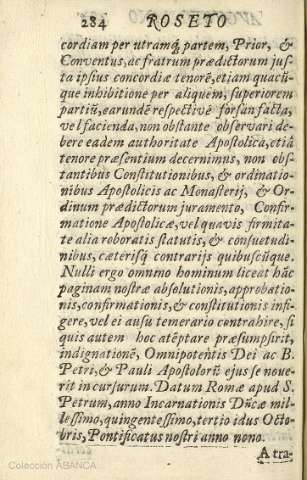 284 ROSETO
cordiam per utramq́, partem, Prior, &
Conventus, ac fratrum prædictorum jus-
ta ipsius concordiæ tenorẽ, etiam quacũ-
que inhibitione per aliquem, superiorem
partiũ, earundẽ respectivè forsan facta,
vel facienda, non obstante observari de-
bere eadem authoritate Apostolica, etiã
tenore præsentium decernimus, non obs-
tantibus Constitutionibus, & ordinatio-
nibus Apostolicis ac Monasterij, & Or-
dinum prædictorum juramento, Confir-
matione Apostolicæ, vel quavis firmita-
te alia roboratis statutis, & consuetudi-
nibus, cæterisq́ contrarijs quibuscũque.
Nulli ergo omnmo hominum liceat hãc
paginam nostræ absolutionis, approbatio-
nis, confirmationis, & constitutionis infi-
gere, vel ei ausu temerario contrahire, si
quis autem hoc atẽptare præsumpsirit,
indignationẽ, Omnipotentis Dei ac B.
Petri, & Pauli Apostolorũ ejus se nove-
rit in cursurum. Datum Romæ apud S.
Petrum, anno Incarnationis Dñcæ mil-
lessimo, quingentessimo, tertio idus Octo-
bris, Pontificatus nostri anno nono.
A tra-
Colección ABANCA